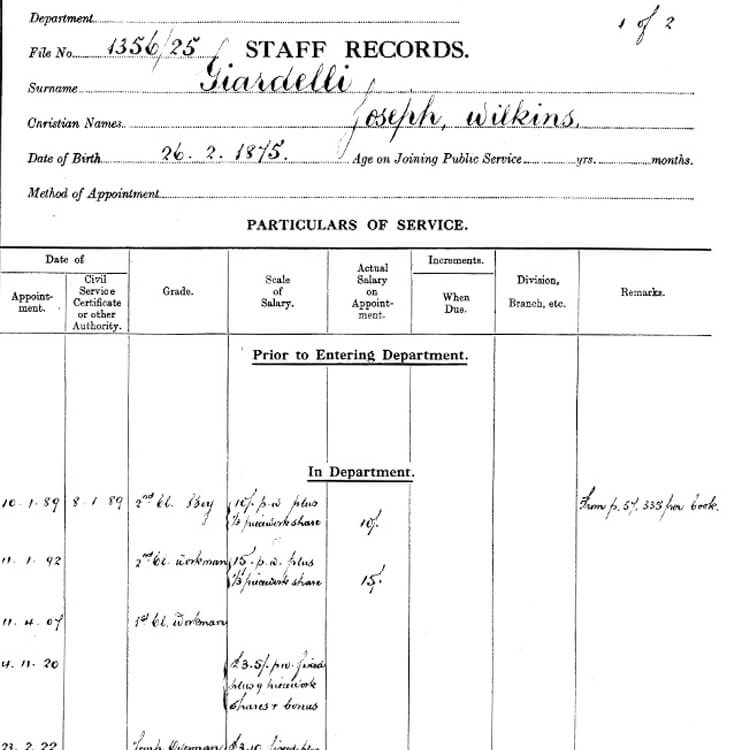 1 of 2
Department
File No. 1356/25 STAFF RECORDS.
Surname Giardelli
Christian Names Joseph, Wilkins.
Date of Birth 26. 2. 1875. Age on Joining Public Service yrs. months.
Method of Appointment
PARTICULARS OF SERVICE.
Date of
Appoint-
ment.
Civil
Service
Certificate
or other
Authority.
Grade.
Scale
of
Salary.
Actual
Salary
on
Appoint-
ment.
Increments.
When
Due.
Division,
Branch, etc.
Remarks.
Prior to Entering Department.
In Department.
10. 1. 89 8. 1. 89 2nd Cl. Boy 10/- p.w plus
piecework share
10/-
From p. 335 per book.
11. 1. 92 2nd Cl. Workman 15/- p.w. plus
piecework share
15/-
11. 4. 07 1st Cl. Workman
4. 11. 20 £3. 5/- p.w. fixed
plus piecework
shares + bonus
23. 2. 22 £3. 10 fixed plus